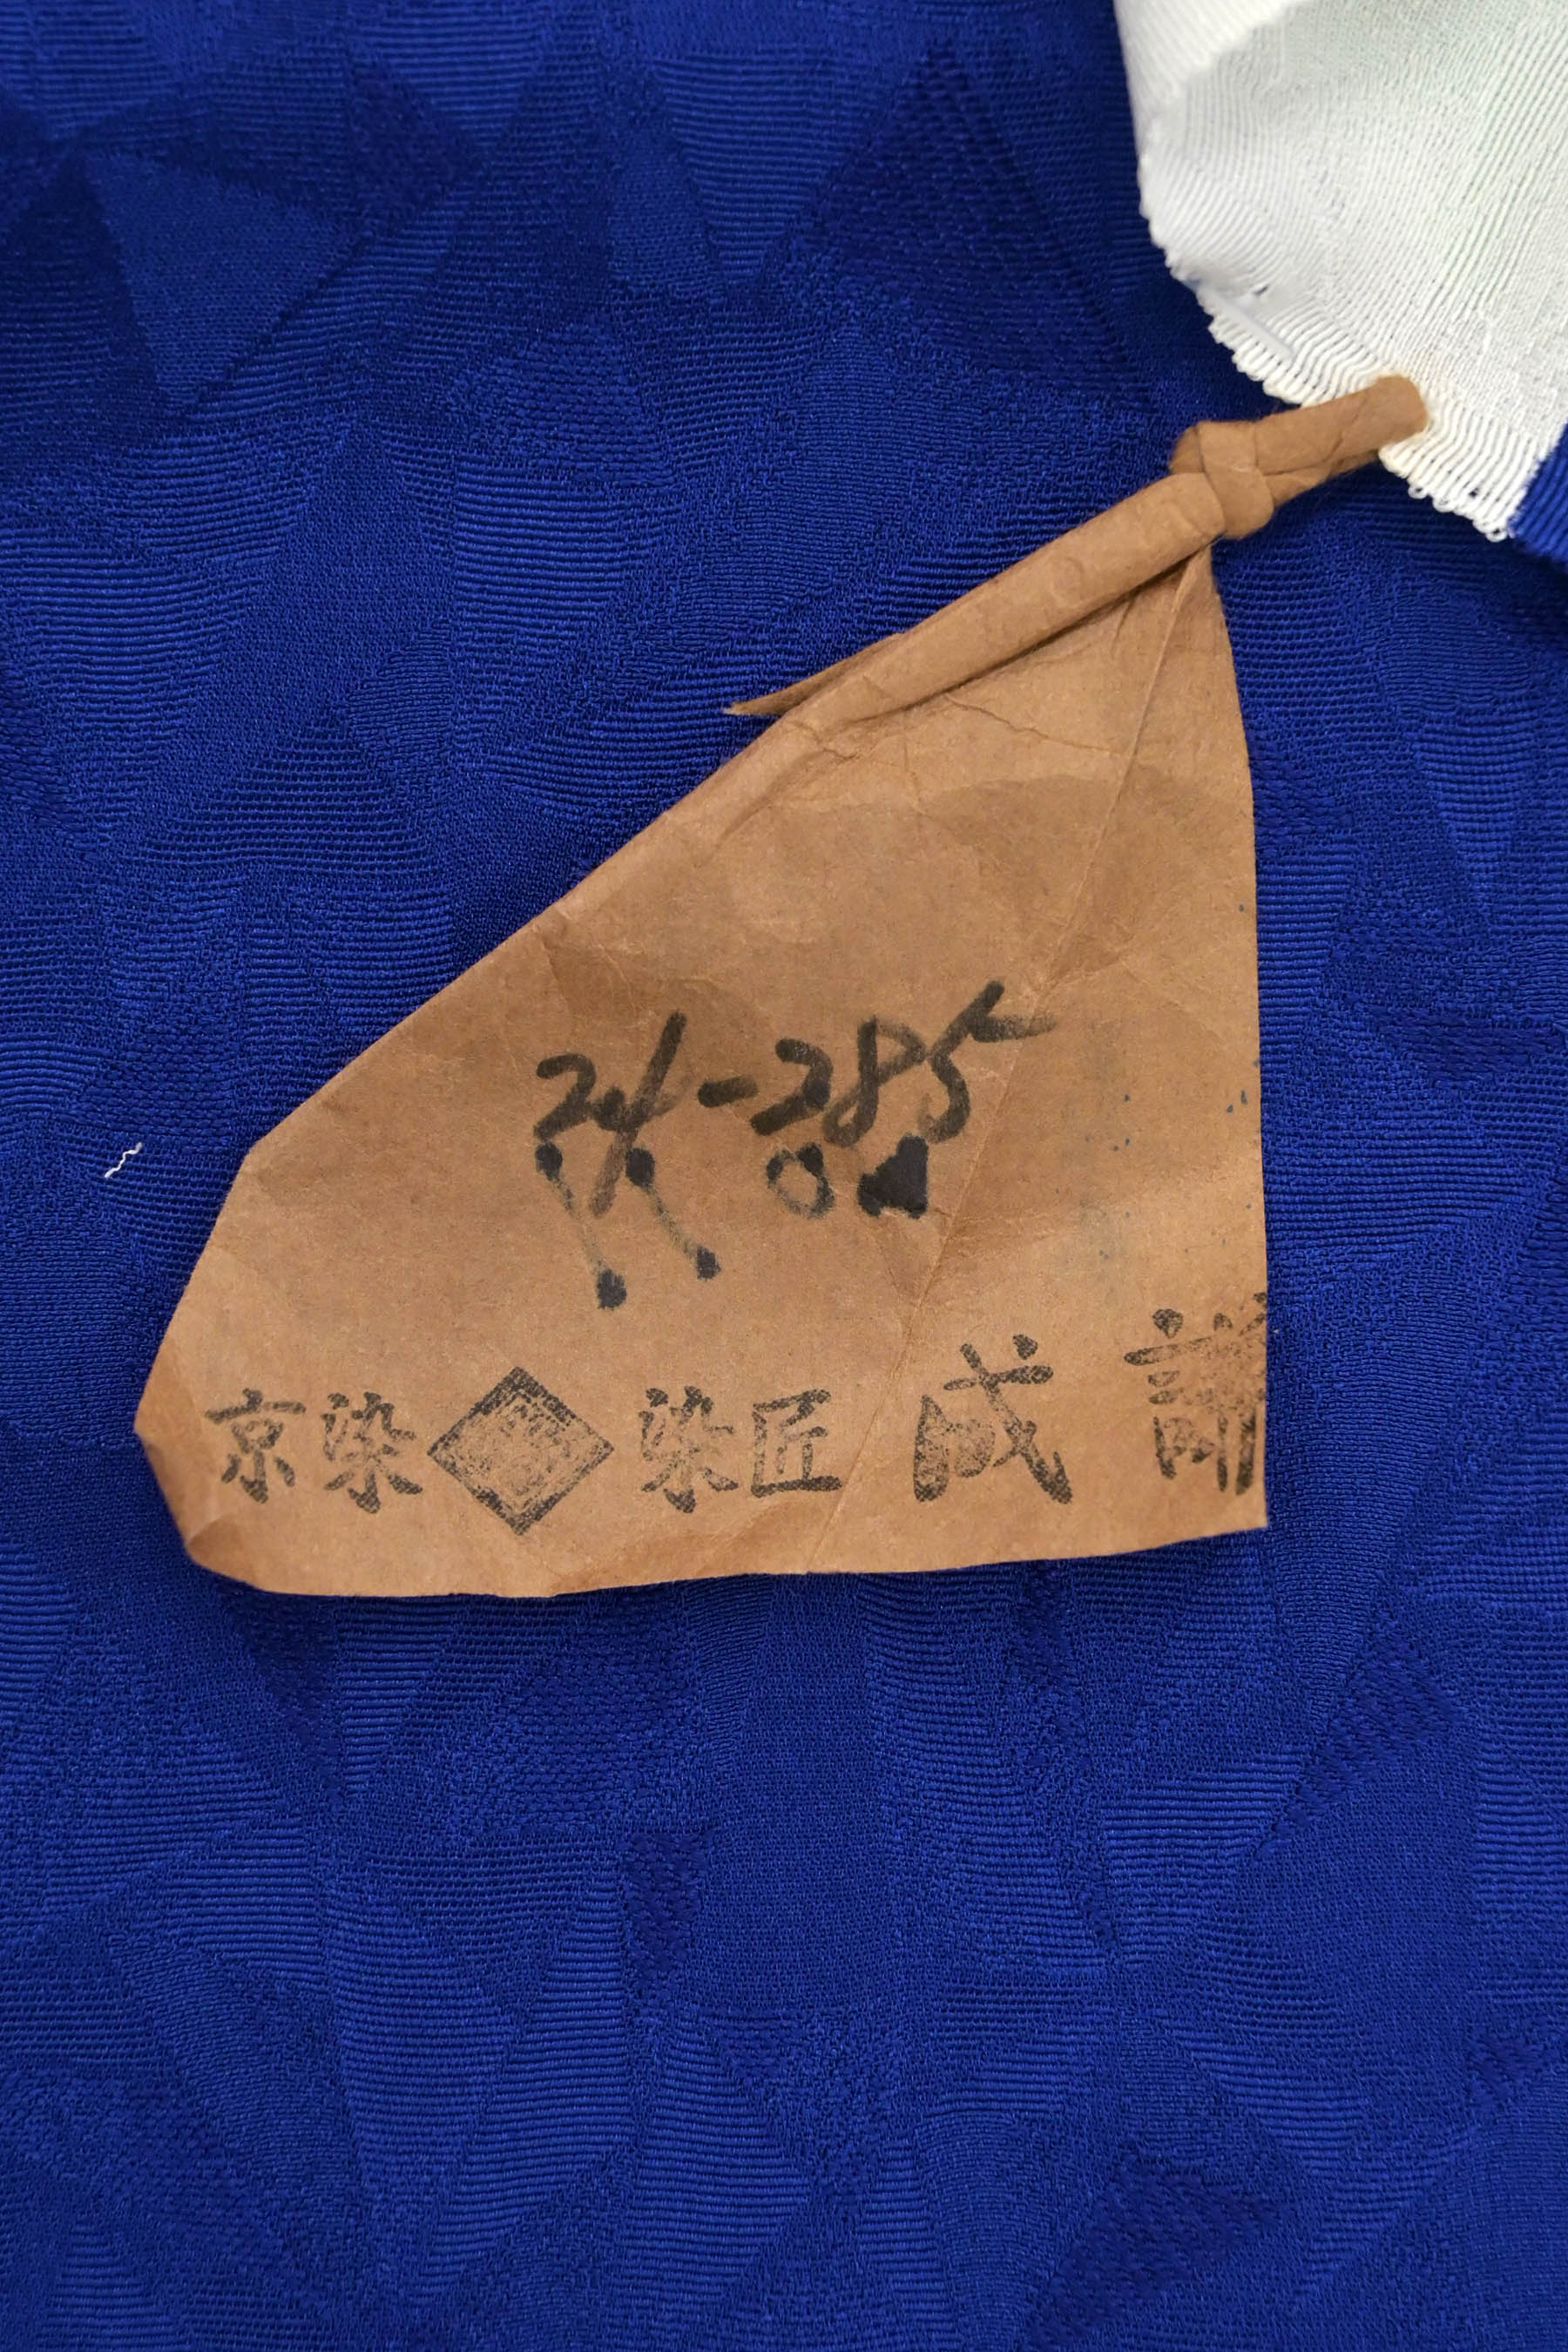 24-285
京染 染匠 成 謹